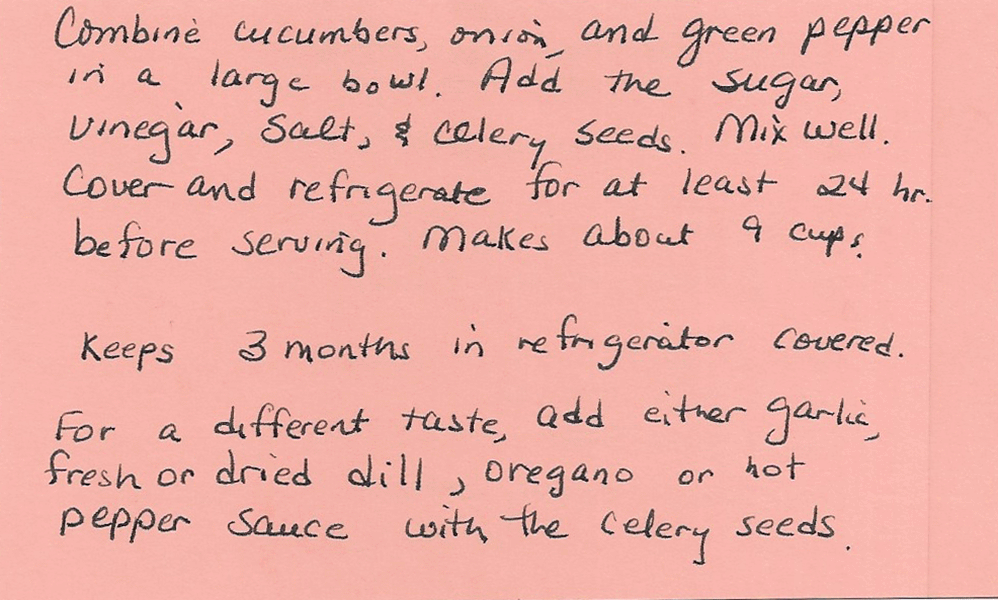 Combine cucumbers, onion, and green pepper
in a large bowl. Add the sugar,
vinegar, salt, & celery seeds. Mix well.
Cover and refrigerate for at least 24 hr.
before serving. Makes about 9 cups.
Keeps 3 months in refrigerator covered.
For a different taste, add either garlic,
fresh or dried dill, oregano or hot
pepper sauce with the celery seeds.